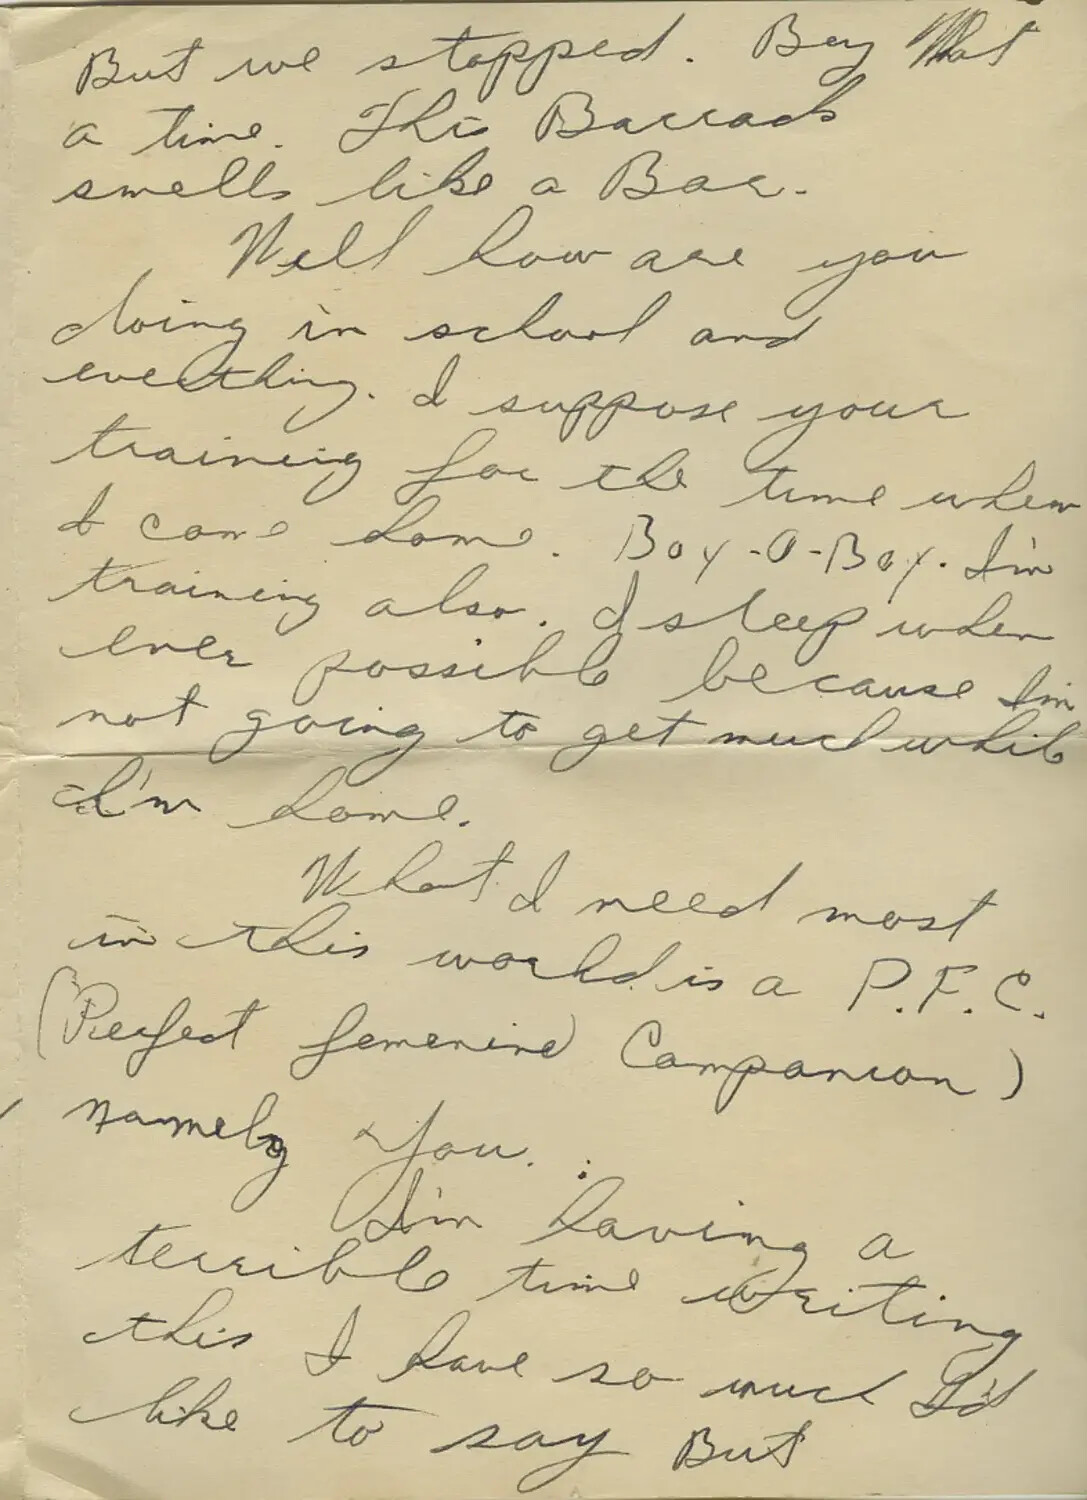 But we stopped. Boy What
a time. This Barracks
smells like a Bar.
Well how are you
doing in school and
everthing. I suppose your
training for the time when
I come home. Boy-O-Boy. I'm
training also. I sleep when
ever possible because I'm
not going to get much while
I'm home.
What I need most
in this world is a P.F.C.
(Perfect femenine Companion)
namely You.
I'm having a
terrible time writing
this I have so much I'd
like to say But